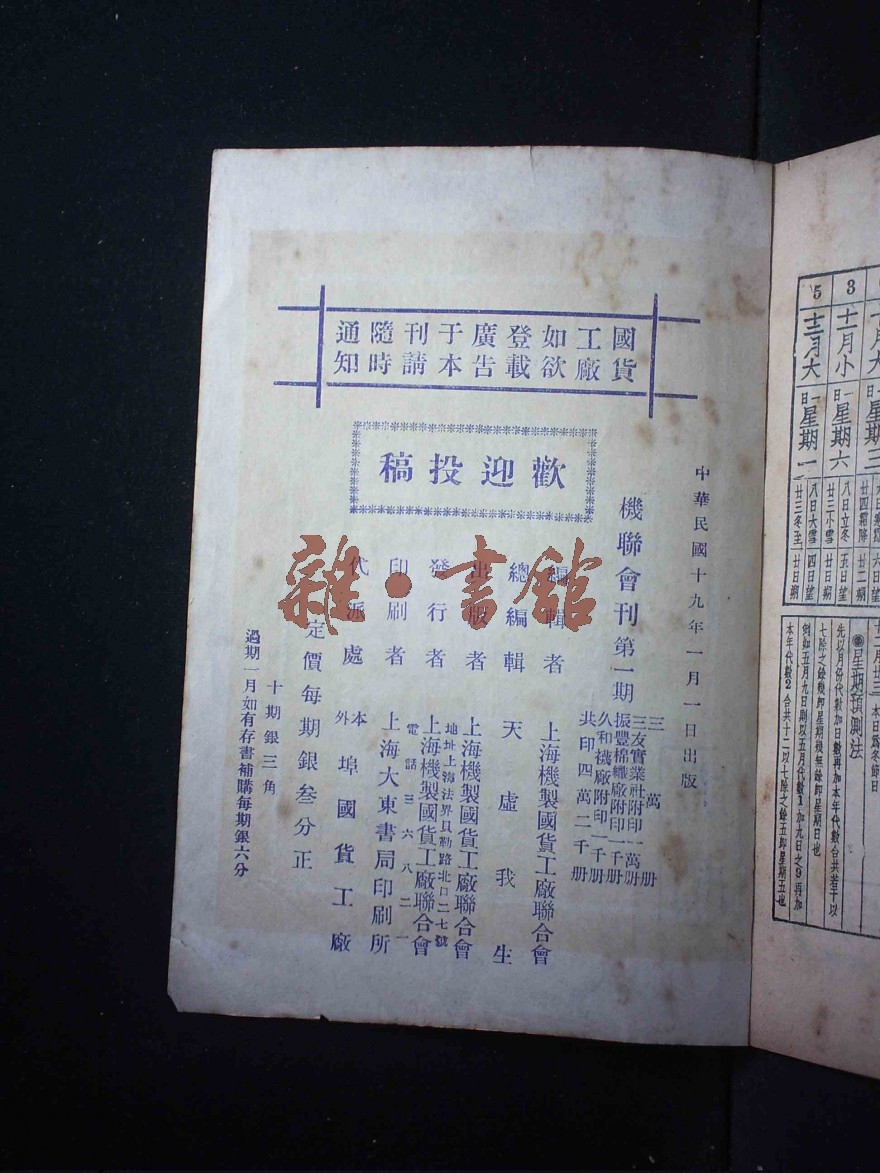 國貨工廠如欲登載廣告于本刊請隨時通知
歡迎投稿
中華民國十九年一月一日出版
機聯會刊第一期
三萬册
三友實業社附印一萬册
振豐棉織廠附印一千册
久和襪廠附印一千册
共印四萬二千册
編輯者 上海機製國貨工廠聯合會
總編輯 天虛我生
出版者 上海機製國貨工廠聯合會
地址上海法界貝勒路北口二七號
發行者 上海機製國貨工廠聯合會
電話三六八二一
印刷者 上海大東書局印刷所
代派處 本外埠國貨工廠
定價每期銀叁分正
十期銀三角
過期一月如有存書補購每期銀六分
雜·書館
3
十一月小
一日星期六
八日立冬 五日望
廿三小雪 廿日朔
5
十二月大
一日星期一
八日大雪 四日望
廿三冬至 廿日朔
星期預測法
先以月份代數加日數再加本年代數合共若干以
七除之餘幾即星期幾無餘即星期日也
例如五月九日則以五月代數1加九日之9再加
本年代數2合共十二以七除之餘五即星期五也